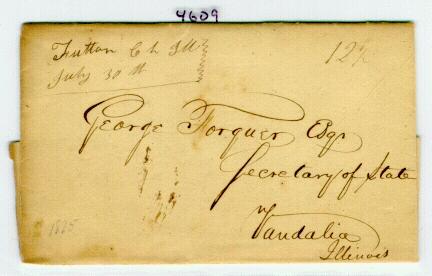 4609
Fulton C h Ill
July 30th
12½
George Forquer Esqr
Secretary of State
Vandalia
Illinois
1825